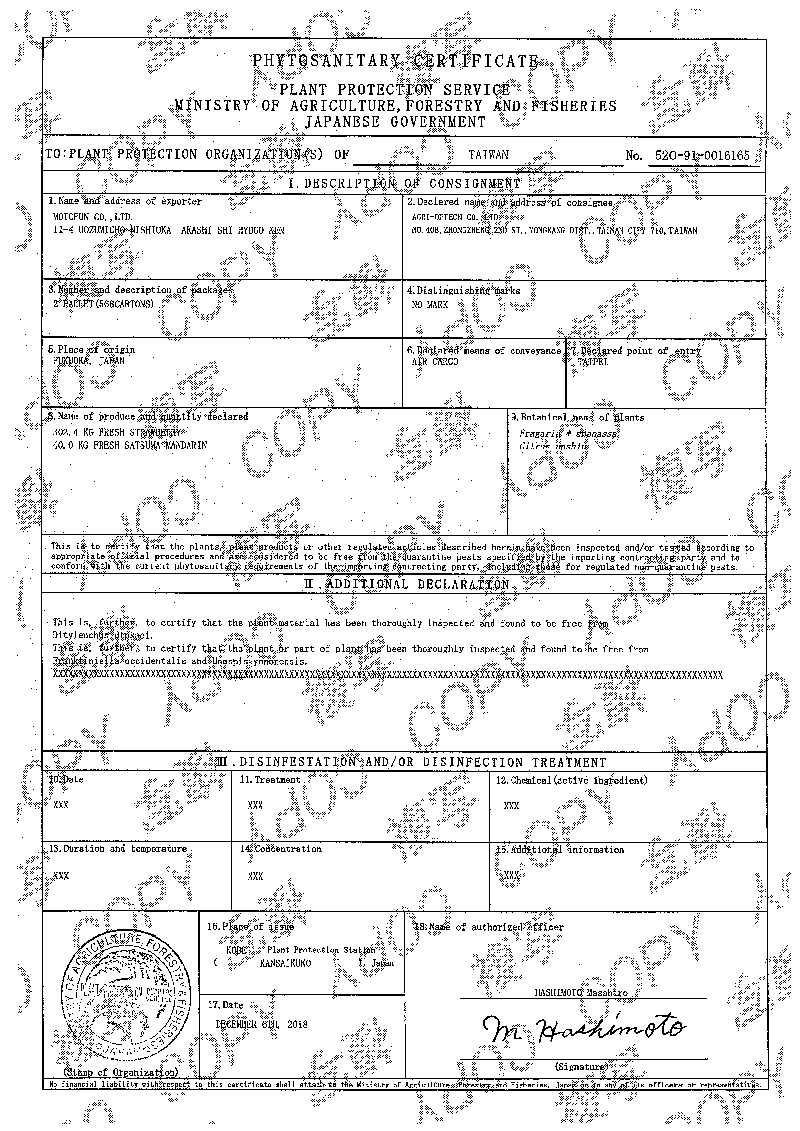 PHYTOSANITARY CERTIFICATE
PLANT PROTECTION SERVICE
MINISTRY OF AGRICULTURE, FORESTRY AND FISHERIES
JAPANESE GOVERNMENT
TO:PLANT PROTECTION ORGANIZATION(S) OF TAIWAN No. 520-91-0016165
I. DESCRIPTION OF CONSIGNMENT
1.Name and address of exporter
CO.,LTD.
NISHIOKA AKASHI SHI HYOGO KEN
2.Declared name and address of consignee
AGRI-OPTECH CO.,LTD
TAINAN CITY 710,TAIWAN
3.Number and description of packages
2 PALLET(568CARTONS)
4.Distinguishing marks
NO MARK
5.Place of origin
FUKUOKA, JAPAN
6.Declared means of conveyance
AIR CARGO
7.Declared point of entry
TAIPEI
8.Name of produce and quantity declared
KG FRESH STRAWBERRY
KG FRESH SATSUMA MANDARIN
9.Botanical name of plants
Citrus unshiu
This is to certify that the plants, plant products or other regulated articles described herein have been inspected and/or tested according to
appropriate official procedures and are considered to be free from the quarantine pests specified by the importing contracting party and to
conform with the current phytosanitary requirements of the importing contracting party, including those for regulated non-quarantine pests.
II. ADDITIONAL DECLARATION
This is, further, to certify that the plant material has been thoroughly inspected and found to be free from
Ditylenchus
This is, further, to certify that the plant or part of plant has been thoroughly inspected and found to be free from
Frankliniella occidentalis and Unaspis yanonensis.
III. DISINFESTATION AND/OR DISINFECTION TREATMENT
10.Date
XXX
11.Treatment
XXX
12.Chemical(active ingredient)
XXX
13.Duration and temperature
XXX
14.Concentration
XXX
15.Additional information
XXX
16.Place of issue
KOBE Plant Protection Station
( KANSAIKUKO ), Japan
17.Date
DECEMBER 6TH, 2018
18.Name of authorized officer
HASHIMOTO Masahiro
M Hashimoto
(Signature)
(Stamp of Organization)
No financial liability with respect to this certificate shall attach to the Ministry of Agriculture, Forestry and Fisheries, Japan or to any of its officers or representatives.